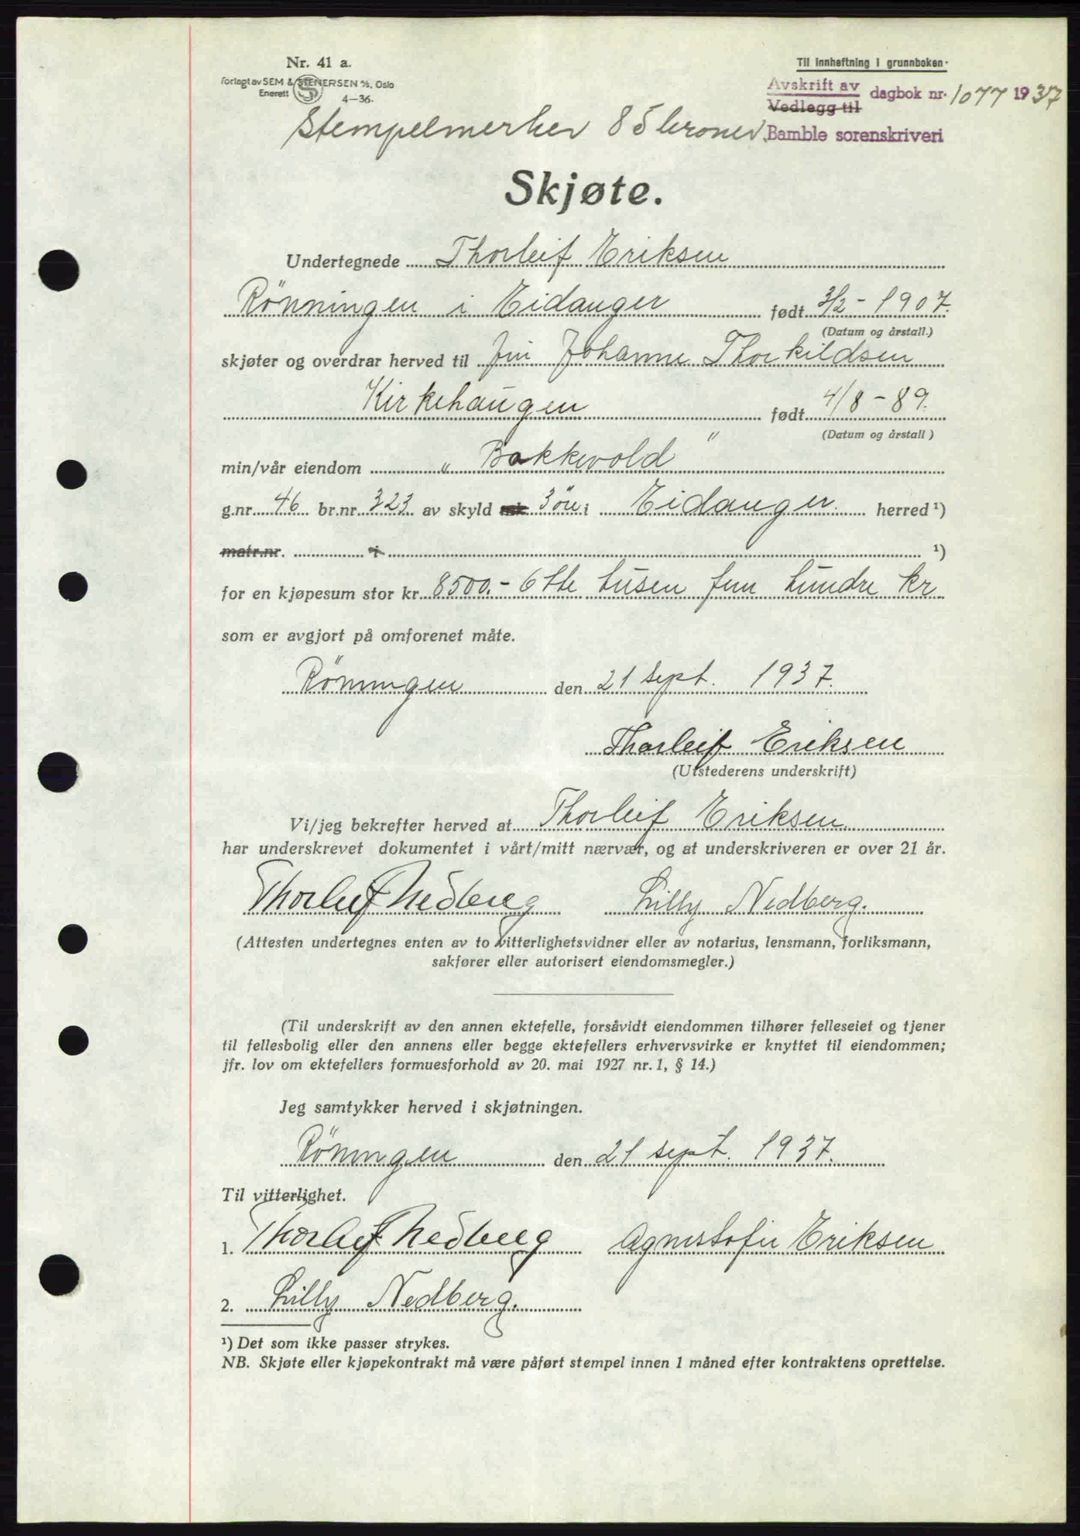 Nr. 41 a.
Forlagt av SEM & STENERSEN A/S, Oslo
Enerett 4-36.
Til innheftning i grunnboken.
Avskrift av
Vedlegg til
dagbok nr. 1077 1937
Bamble sorenskriveri
Stempelmerker 85 kroner.
Skjøte.
Undertegnede Thorleif Eriksen
Rönningen i Eidanger født 3/2-1907.
(Datum og årstall.)
skjøter og overdrar herved til Johanne Thorkildsen
Kirkehaugen født 4/8-89.
(Datum og årstall)
min/vår eiendom „Bakkevold"
g.nr. 46 br.nr. 323 av skyld mk 3 öre i Eidanger. herred ¹)
matr.nr. i ¹)
for en kjøpesum stor kr. 8500.- Otte tusen fem hundre kr
som er avgjort på omforenet måte.
Rönningen den 21 sept. 1937.
Thorleif Eriksen
(Utstederens underskrift)
Vi/jeg bekrefter herved at Thorleif Eriksen
har underskrevet dokumentet i vårt/mitt nærvær, og at underskriveren er over 21 år.
Thorleif Nedberg Lilly Nedberg.
(Attesten undertegnes enten av to vitterlighetsvidner eller av notarius, lensmann, forliksmann,
sakfører eller autorisert eiendomsmegler.)
(Til underskrift av den annen ektefelle, forsåvidt eiendommen tilhører felleseiet og tjener
til fellesbolig eller den annens eller begge ektefellers erhvervsvirke er knyttet til eiendommen;
jfr. lov om ektefellers formuesforhold av 20. mai 1927 nr. 1, § 14.)
Jeg samtykker herved i skjøtningen.
Rönningen den 21 sept. 1937.
Til vitterlighet.
1. Thorleif Nedberg Agnes Sofie Eriksen
2. Lilly Nedberg.
¹) Det som ikke passer strykes.
NB. Skjøte eller kjøpekontrakt må være påført stempel innen 1 måned efter kontraktens oprettelse.